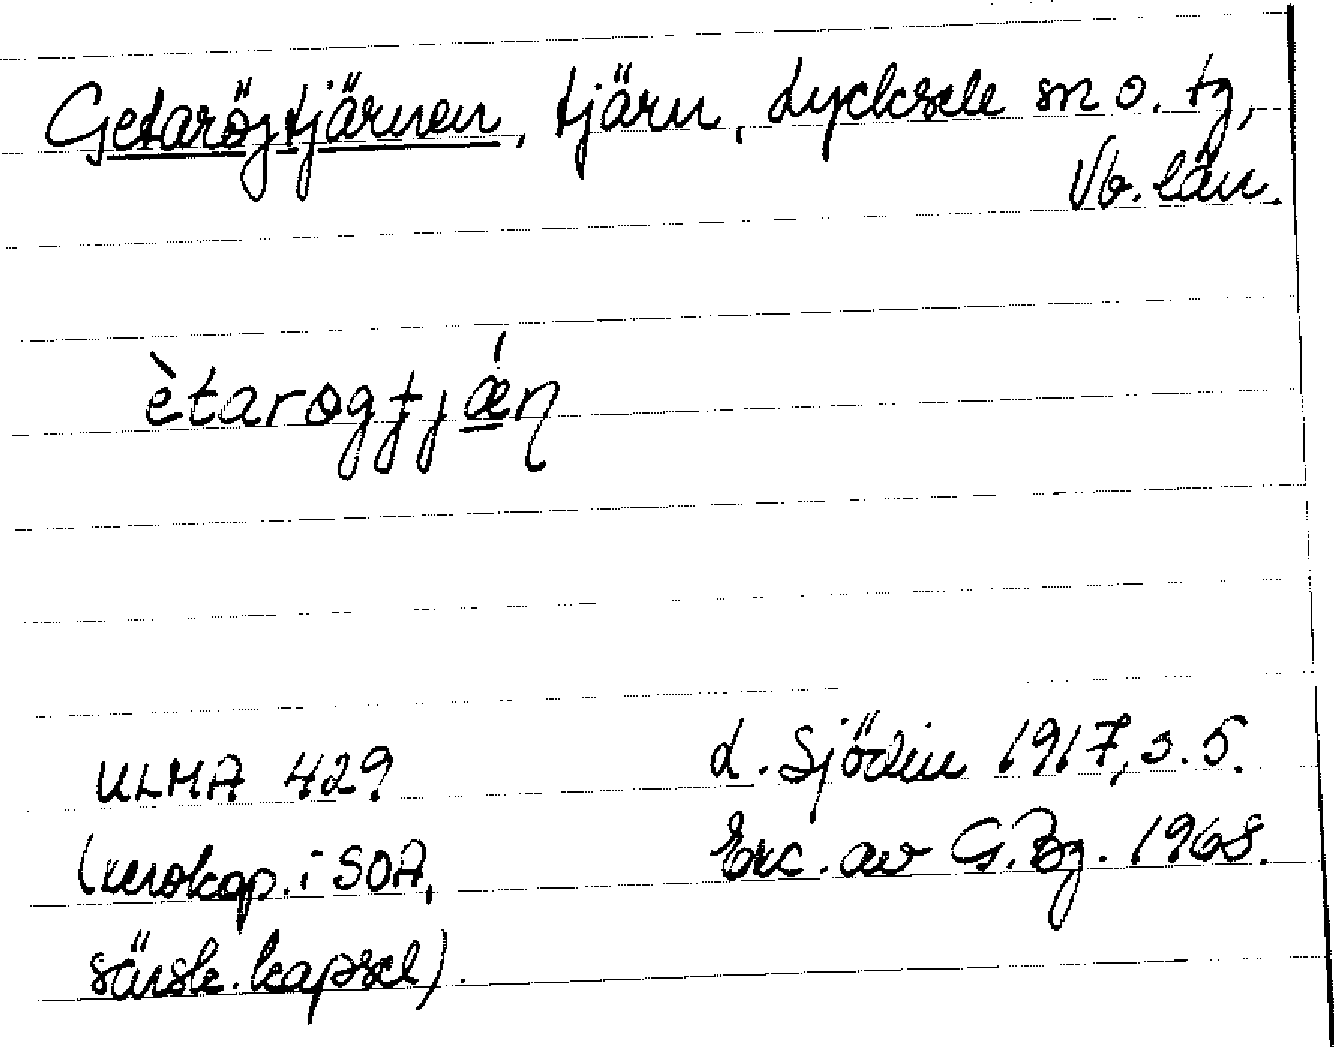 Getarögtjärnen, tjärn, Lycksele sn o. tg,
Vb. län.
ètarogtjǽn
ULMA 429
(xerokop. i SOA,
särsk. kapsel).
L. Sjödin 1917, s. 5.
Exc. av G. Bg. 1968.